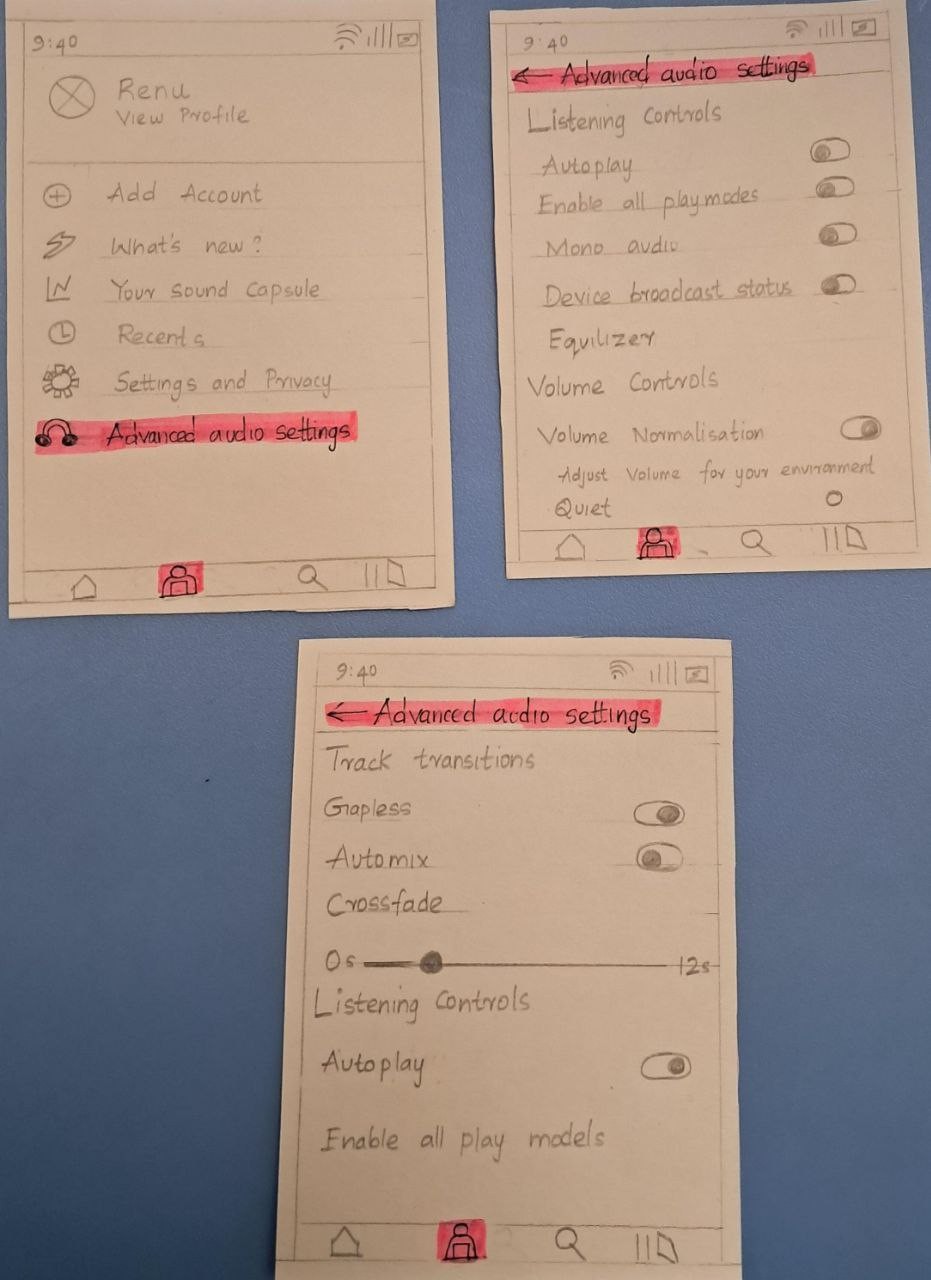 9:40
Renu
View Profile
Add Account
What's new?
Your sound capsule
Recents
Settings and Privacy
Advanced audio settings
9:40
← Advanced audio settings
Listening Controls
Autoplay
Enable all playmodes
Mono audio
Device broadcast status
Equilizer
Volume Controls
Volume Normalisation
Adjust Volume for your environment
Quiet
9:40
← Advanced audio settings
Track transitions
Gapless
Automix
Crossfade
0s 12s
Listening Controls
Autoplay
Enable all play models